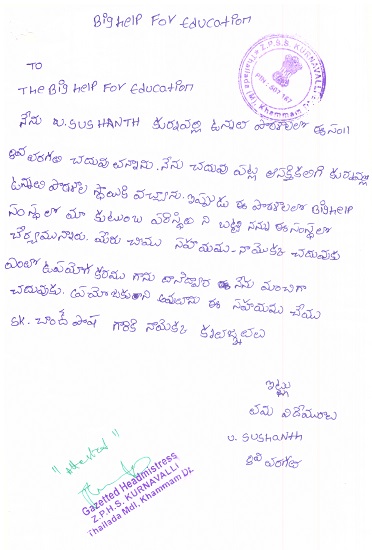 Big Help For Education
TO
The Big Help For Education
Z.P.S.S. KURNAVALLI
Thallada Mdl. Khammam Dt.
PIN: 507 167
నేను U. SUSHANTH కుర్నవల్లి ఉన్నత పాఠశాలలో ఈ సం॥
6వ తరగతి చదువు చున్నాను. నేను చదువు పట్ల ఆసక్తికలిగి కుర్నవల్లి
ఉన్నత పాఠశాల స్థాయికి వచ్చాను. ఇప్పుడు ఈ పాఠశాలలో Big Help
సంస్థలో మా కుటుంబ పరిస్థితి ని బట్టి నన్ను ఈ సంస్థలో
చేర్చుకున్నారు. మీరు చేయు సహాయము నాయొక్క చదువుకు
ఎంతో ఉపయోగకరము గాను ఈ నేను మంచిగా
చదువుకు. ఈ సహాయము చేయు
SK. చాంద్ పాష గారికి నాయొక్క కృతజ్ఞతలు
ఇట్లు
తమ విదేయుడు
U. Sushanth
6వ తరగతి
"Attested"
Gazetted Headmistress
Z.P.H.S. KURNAVALLI
Thallada Mdl. Khammam Dt.